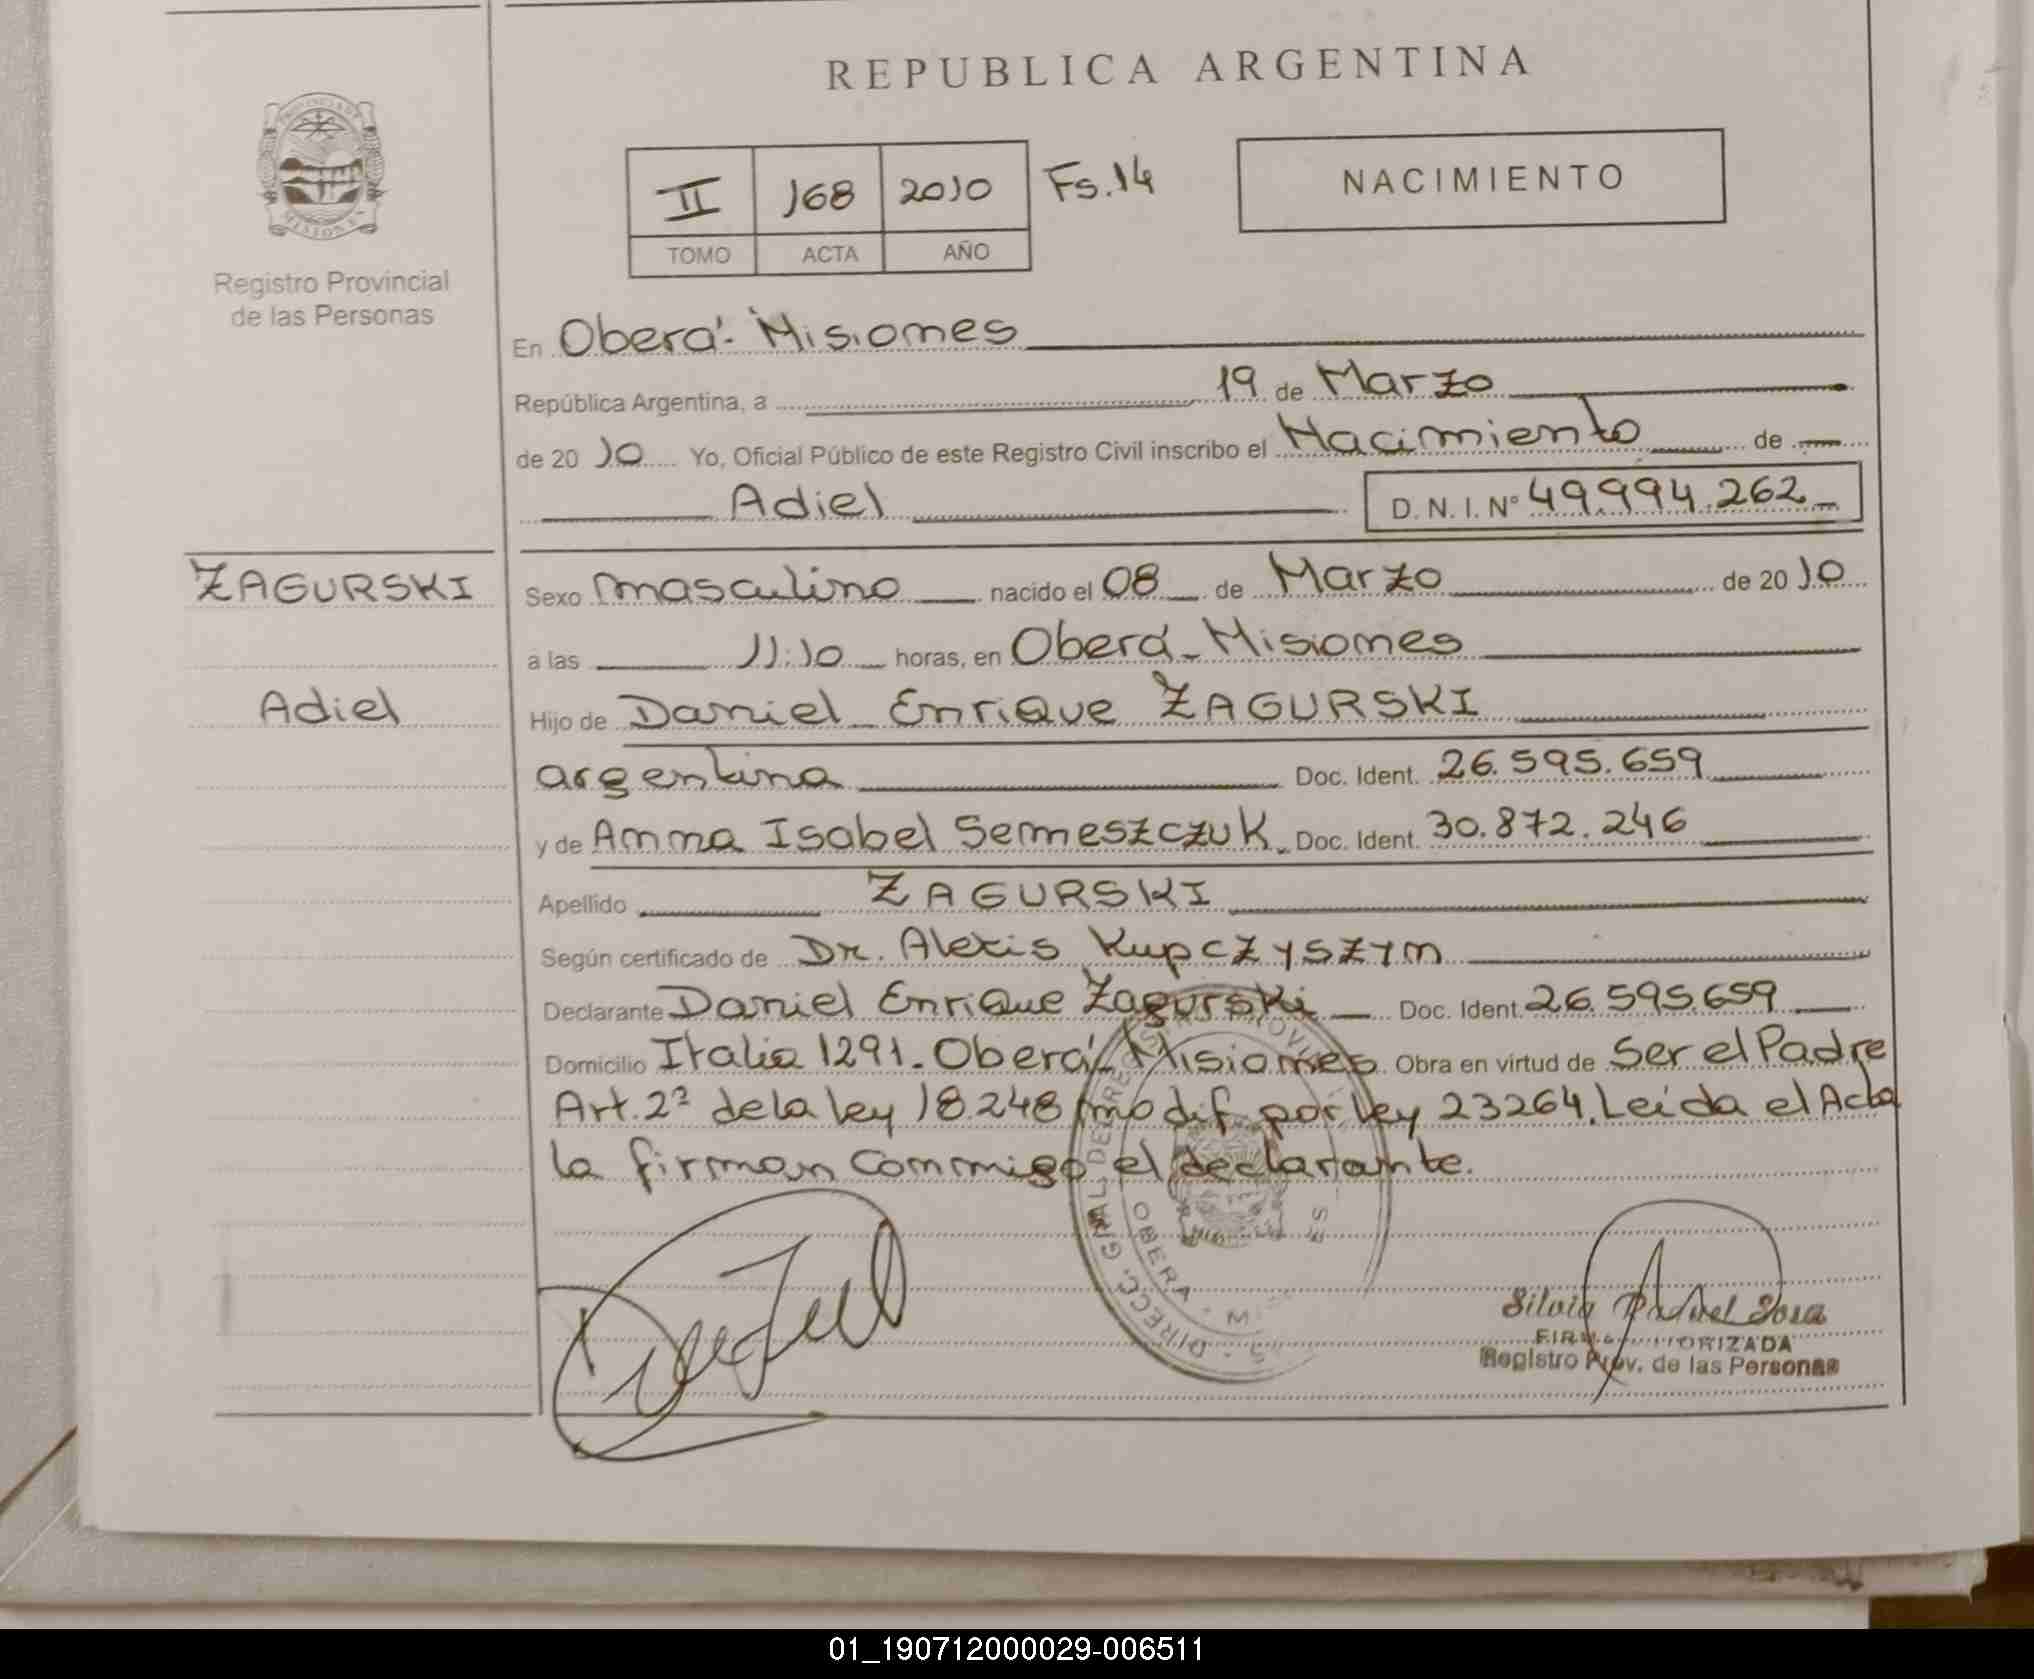 REPUBLICA ARGENTINA
II 168 2010 Fs.14
TOMO ACTA AÑO
NACIMIENTO
Registro Provincial
de las Personas
En Oberá - Misiones
República Argentina, a 19 de Marzo
de 2010 Yo, Oficial Público de este Registro Civil inscribo el Nacimiento de
Adiel D.N.I. Nº 49.994.262
ZAGURSKI
Adiel
Sexo masculino nacido el 08 de Marzo de 2010
a las 11:10 horas, en Oberá - Misiones
Hijo de Daniel Enrique ZAGURSKI
argentina Doc. Ident. 26.595.659
y de Anna Isabel Semeszczuk Doc. Ident. 30.872.246
Apellido ZAGURSKI
Según certificado de Dr. Alexis Kupczyszyn
Declarante Daniel Enrique Zagurski Doc. Ident. 26.595.659
Domicilio Italia 1291. Oberá Misiones Obra en virtud de Ser el Padre
Art. 2º de la ley 18.248 modif por ley 23264. Leída el Acta
la firman conmigo el declarante.
DIRECC. GRAL. DEL REGISTRO
OBERA
Silvia Raquel Sosa
FIRMA AUTORIZADA
Registro Prov. de las Personas
01_190712000029-006511